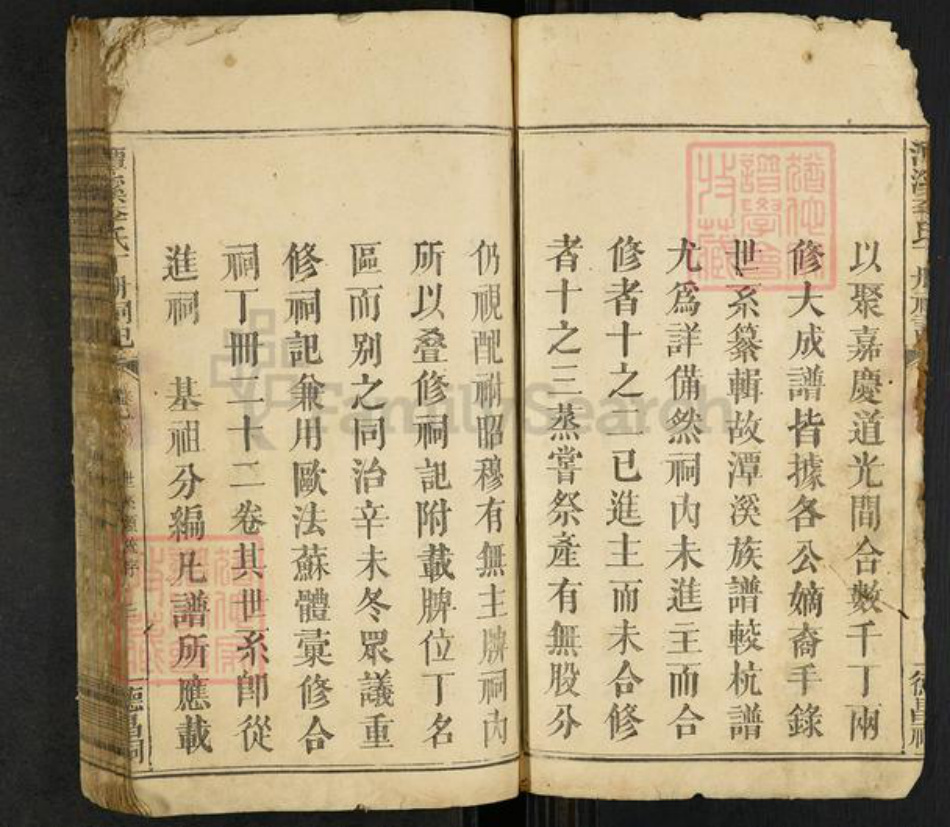 以聚嘉慶道光間合數千丁兩
修大成譜皆據各公嫡裔手錄
世系纂輯故潭溪族譜較杭譜
尤為詳備然祠內未進主而合
修者十之二已進主而未合修
者十之三蒸嘗祭產有無股分
仍視配祔昭穆有無主牌祠內
所以叠修祠記附載牌位丁名
區而别之同治辛未冬眾議重
修祠記兼用歐法蘇體彙修合
祠丁冊二十二卷其世系卽從
進祠 基祖分編凡譜所應載
德昌祠
FamilySearch